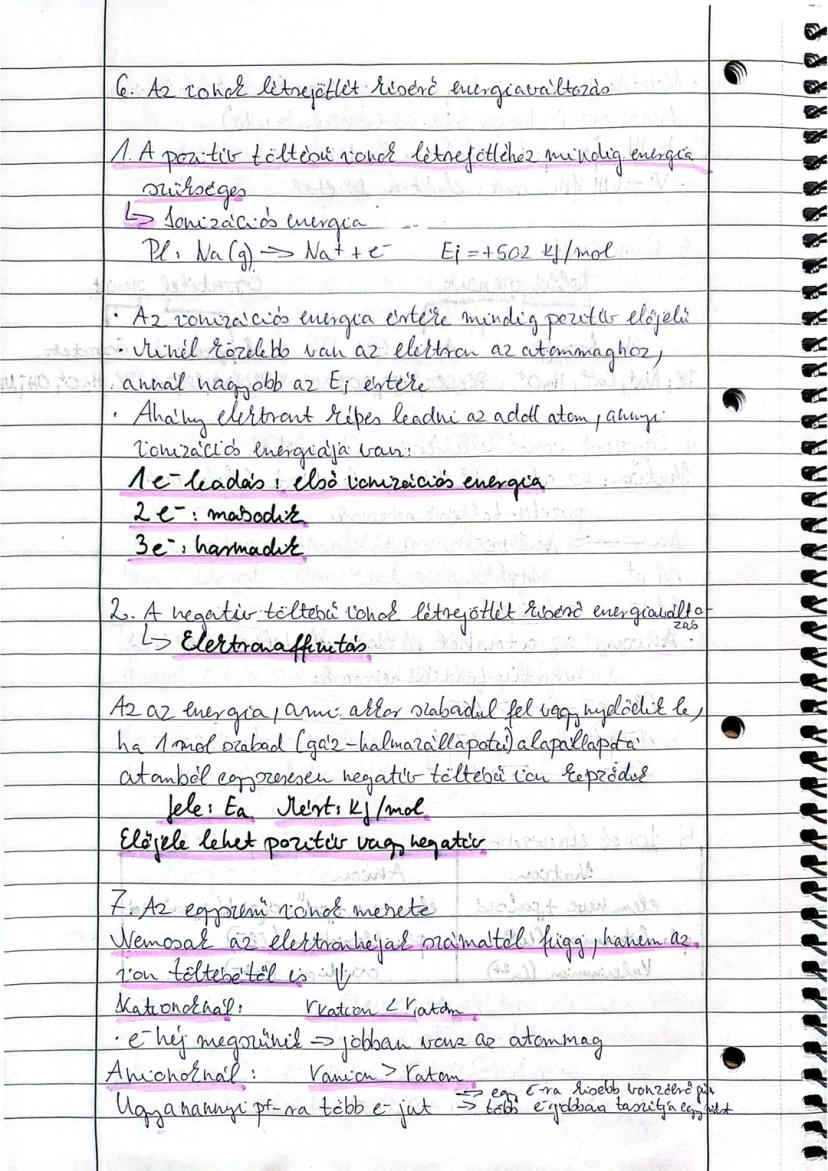 6. Az ionok létrejöttét kísérő energiaváltozás
1. A pozitív töltésű ionok létrejöttéhez mindig energia
szükséges
↳ Ionizációs energia
Pl: Na(g) → Na⁺ + e⁻ Ei = +502 kJ/mol
· Az ionizációs energia értéke mindig pozitív előjelű
· Minél közelebb van az elektron az atommaghoz,
annál nagyobb az Ei értéke
· Ahány elektront képes leadni az adott atom, annyi
ionizációs energiája van:
1 e⁻ leadás: első ionizációs energia
2 e⁻: második
3 e⁻: harmadik
2. A negatív töltésű ionok létrejöttét kísérő energiaválto-
zás
↳ Elektronaffinitás
Az az energia, ami akkor szabadul fel vagy nyelődik le,
ha 1 mol szabad (gáz-halmazállapotú) alapállapotú
atomból egyszeresen negatív töltésű ion képződik
Jele: Ea Mért: kJ/mol
Előjele lehet pozitív vagy negatív
7. Az egyszerű ionok mérete
Nemcsak az elektronhéjak számától függ, hanem az
ion töltésétől is ⇓
Kationoknál: rkation < ratom
· e⁻ héj megszűnik ⇒ jobban vonz az atommag
Anionoknál: ranion > ratom
Ugyanannyi p⁺-ra több e⁻ jut ⇒ egy e⁻-ra kisebb vonzóerő jut
⇒ több e⁻ jobban taszítja egymást